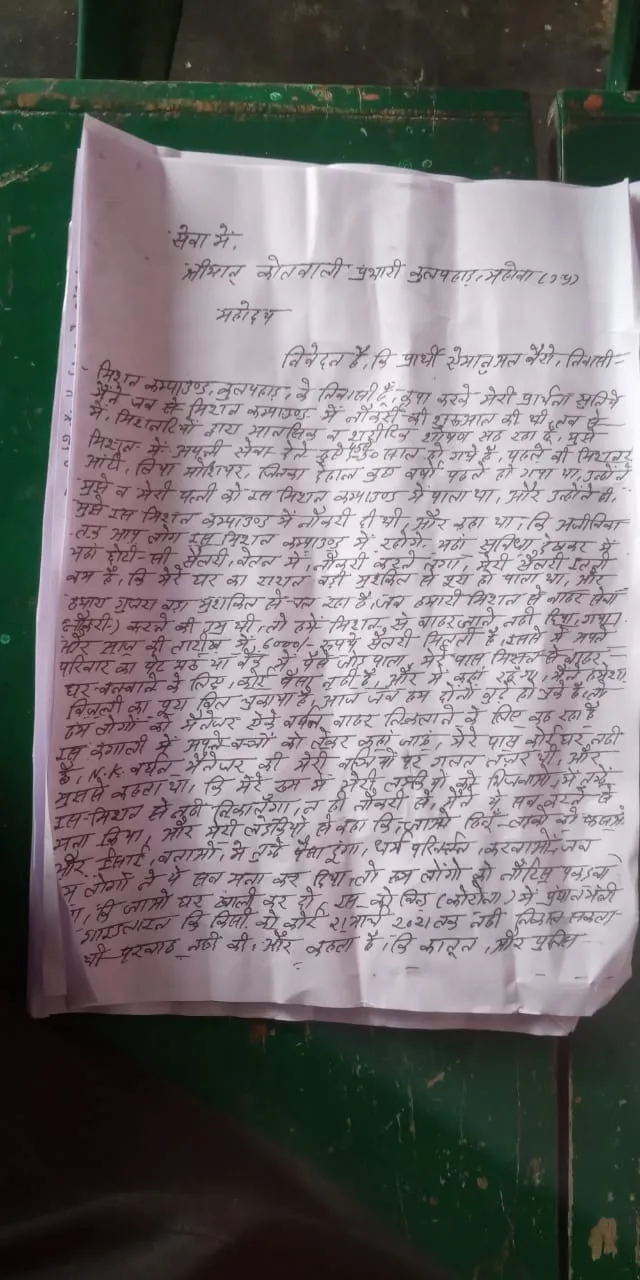 सेवा में,
श्रीमान् कोतवाली प्रभारी कुलपहाड़, महोबा (उ०प्र०)
महोदय
विनेदन है, कि प्रार्थी निवासी-
मिशन कम्पाउण्ड, कुलपहाड़, के निवासी हैं, कृपा करके मेरी प्रार्थना सुनिये
मैंने जब से मिशन कम्पाउण्ड में नौकरी की शुरूआत की थी, तब से
में, मिशनरियों द्वारा मानसिक व शारीरिक शोषण सह रहा हूँ, मुझे
मिशन में अपनी सेवा देते हुये साल हो गये हैं, पहले की मिशनर
आंटी, लिया मोशियर, जिनका देहान्त कुछ वर्षों पहले हो गया था, उन्होंने
मुझे व मेरी पत्नी को इस मिशन कम्पाउण्ड में पाला था, और उन्होंने ही,
मुझे इस मिशन कम्पाउण्ड में नौकरी दी थी, और कहा था, कि
तक आप लोग इस मिशन कम्पाउण्ड में रहोगे यहां सुविधा देखकर में
यहां थोड़ी-सी सैलरी, वेतन में, नौकरी करने लगा, मेरी सैलरी इतनी
कम है, कि मेरे घर का राशन बड़ी मुश्किल से पूरा हो पाता था, और
हमारा गुजारा बड़ा मुशकिल से चल रहा है, जब हमारी मिशन से बाहर सेवा
(नौकरी) करने की उम्र थी, तो हमें मिशन से बाहर जाने नहीं दिया, गया।
और आज की तारीख में, 6000/- रूपये सैलरी मिलती है, इसमें में अपने
परिवार का पेट भरूं या में, पैसे जोड़ पाता, मेरे पास मिशन से बाहर,
घर-बनवाने के लिए, कोई पैसा नहीं है, और में कहां मैंने हमेशा
बिजली का पूरा बिल चुकाया है, आज जब हम दोनों बूढ़े हो चुके हैं, तो
हम लोगों को मैनेजर बाहर निकालने के लिए कह रहा है
इस कंगाली में अपने बच्चों को लेकर कहां जाऊं, मेरे पास कोई घर नहीं
है, N.K. मैनेजर की मेरी बच्चियों पर गलत नजर थी, और
मुझसे कहता था, कि मेरे रूम में तेरी लड़कियों को भिजवाओ, में तुम्हें
इस-मिशन से नहीं निकालूँगा, न ही नौकरी से, मैंने ये सब करने से
मना किया, और मेरी लड़कियों से कहा कि, हिन्दू लड़कों को
और ईसाई, बनाओ, में तुम्हें पैसा दूंगा, धर्म परिवर्तन, करवाओ, जब
हम लोगों ने ये सब मना कर दिया, तो हम लोगों को नोटिस पकड़वा
कि जाओ घर खाली कर दो, इस को विड (कोरोना) में प्रधानमंत्री
गाइडलाइन कि किसी को कोई 21 मार्च 2021 तक नहीं निकाल सकता
की परवाह नहीं की, और कहता है, कि कानून, और पुलिस